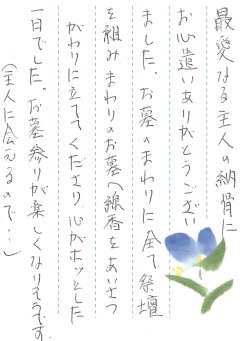 最愛なる主人の納骨に
お心遣いありがとうござい
ました。お墓のまわりに全て祭壇
を組みまわりのお墓へ線香をあいさつ
がわりに立ててくださり、心がホッとした
一日でした。お墓参りが楽しくなりそうです。
(主人に会えるので…)